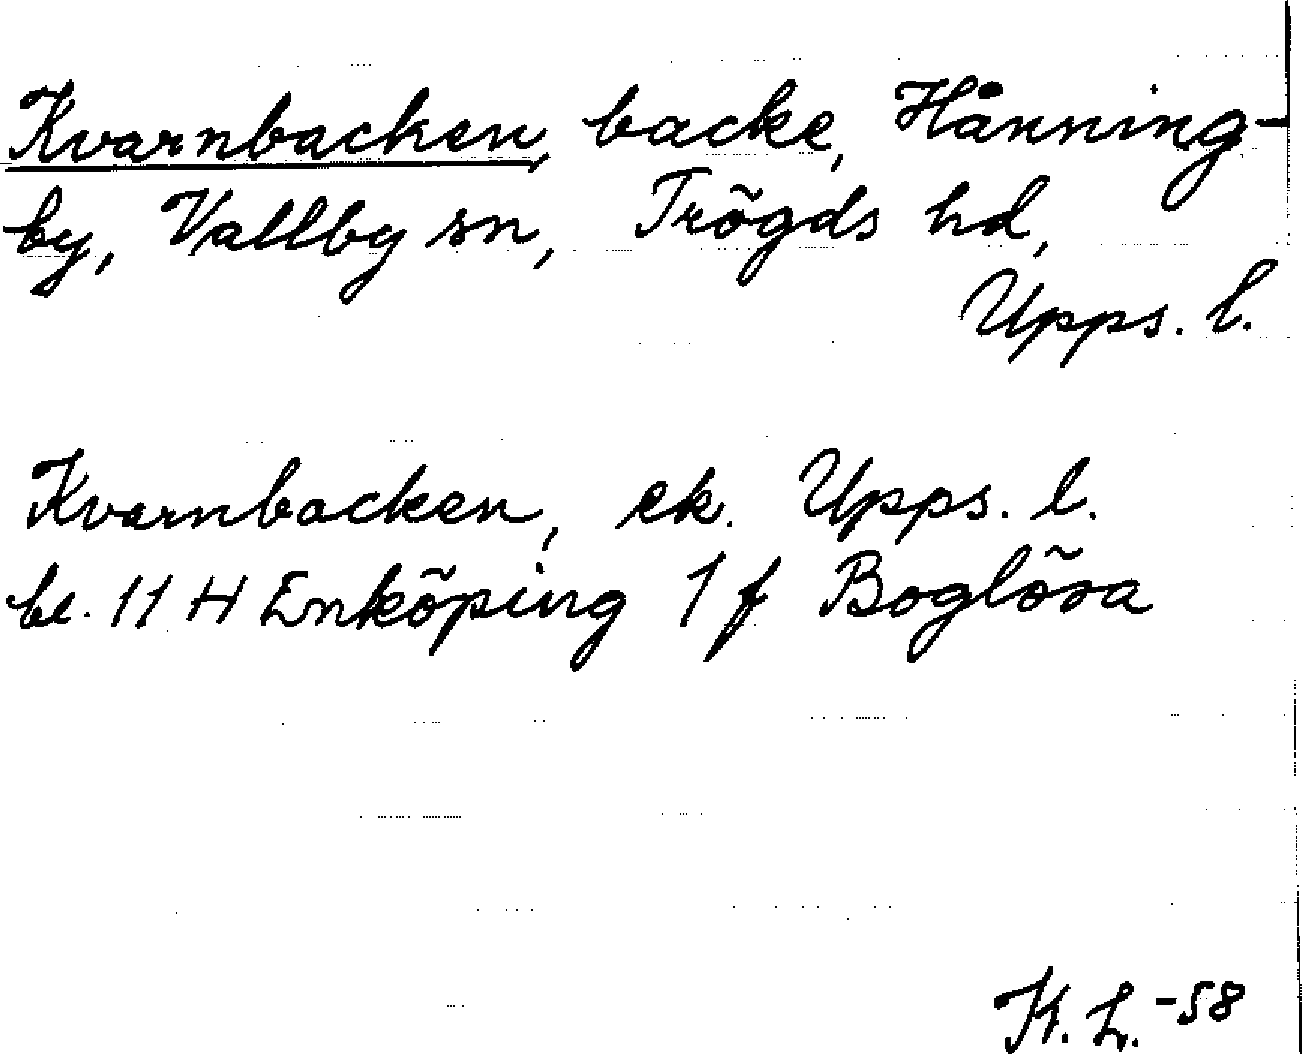 Kvarnbacken, backe, Hånning-
by, Vallby sn, Trögds hd,
Upps. l.
Kvarnbacken, ek. Upps. l.
bl. 11 H Enköping 1 f Boglösa
K. L. -58